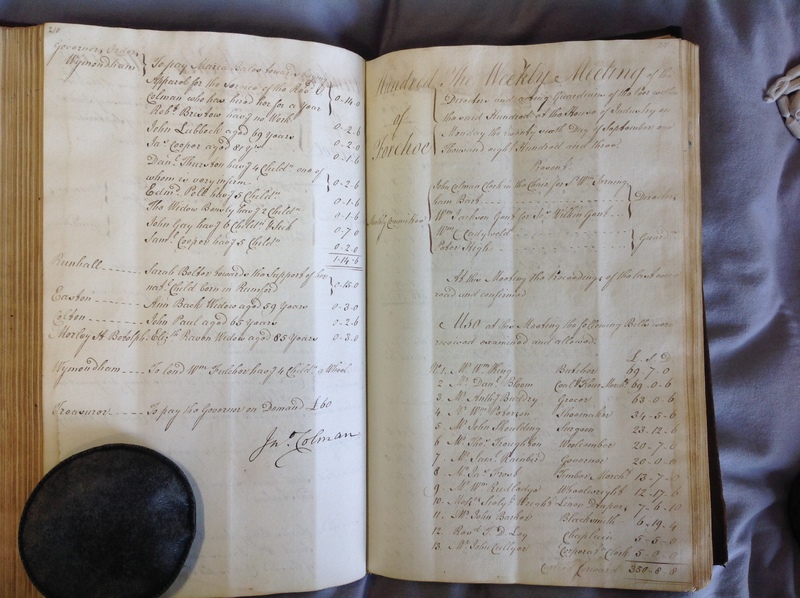 210
Governors Orders
Wymondham } To pay Maria Bales towards
Apparel for the Service of the Revd. C
Colman who has hired her for a Year } 0-14-0
Robt. Bristow havg no Work 0-2-6
John Lubbock aged 69 Years 0-2-0
Jas. Cooper aged 81 Yrs 0-1-6
Danl. Thurston havg 4 Childn. one of
whom is very infirm } 0-2-6
Edmd. Pell havg 5 Childn. 0-1-6
The Widow Bowly havg 2 Childn. 0-1-6
John Gay havg 6 Childn. & Sick 0-7-0
Saml. Cooper havg 5 Childn. 0-2-0
1-14-6
Runhall Sarah Bolter towards the Support of her
natl. Child born in Rumford } 0-15-0
Easton Ann Back Widow aged 59 Years 0-3-0
Colton John Paul aged 65 Years 0-2-6
Morley St. Botolph Elizth. Raven Widow aged 85 Years 0-3-0
Wymondham To lend Wm. Fulcher havg 4 Childn. a Wheel
Treasurer To pay the Governor on Demand £60
Jno. Colman
Hundred of Forehoe
The Weekly Meeting of the
Directors and Acting Guardians of the Poor within
the said Hundred at the House of Industry on
Monday the twenty sixth Day of September one
Thousand eight Hundred and three
Present
Weekly Committee
John Colman Clerk in the Chair for Sr. Wm. Jerning
ham Bart.
Wm. Jackson Gent. for Jno. Wilkin Gent. } Directors
Wm. Cladywell
Peter High } Guardns.
At this Meeting the Proceedings of the last were
read and confirmed
Also at this Meeting the following Bills were
received examined and allowed
£. S. D
No. 1. Mr. Wm. King Butcher 69-7-0
2 Mr. Danl. Bloom Coal & Flour Mercht. 69-0-6
3. Mr. Anthy. Bundry Grocer 63-0-6
4. Mr. Wm. Peterson Shoemaker 34-5-6
5 Mr. John Skoulding Surgeon 23-12-6
6 Mr. Thos. Troughton Woolcomber 20-7-0
7 Mr. Saml. Rainbird Governor 20-0-0
8 Mr. Jas. Frost Timber Mercht. 13-7-0
9 Mr. Wm. Rutledge Wheelwright 12-17-6
10 Messrs. Linen Drapers 7-6-10
11. Mr. John Barker Blacksmith 6-19-4
12. Revd. T. D. Loy Chaplain 5-5-0
13. Mr. John Cullyer Corporan. Clerk 5-0-0
Carried forward 350-8-8